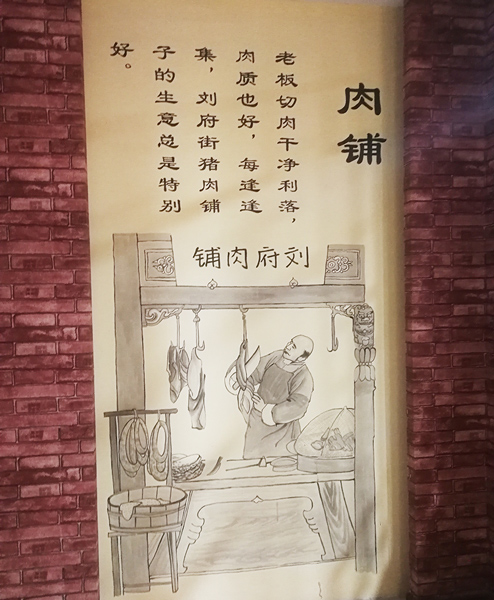 肉铺
老板切肉干净利落，
肉质也好，每逢逢
集，刘府街猪肉铺
子的生意总是特别
好。
刘府肉铺